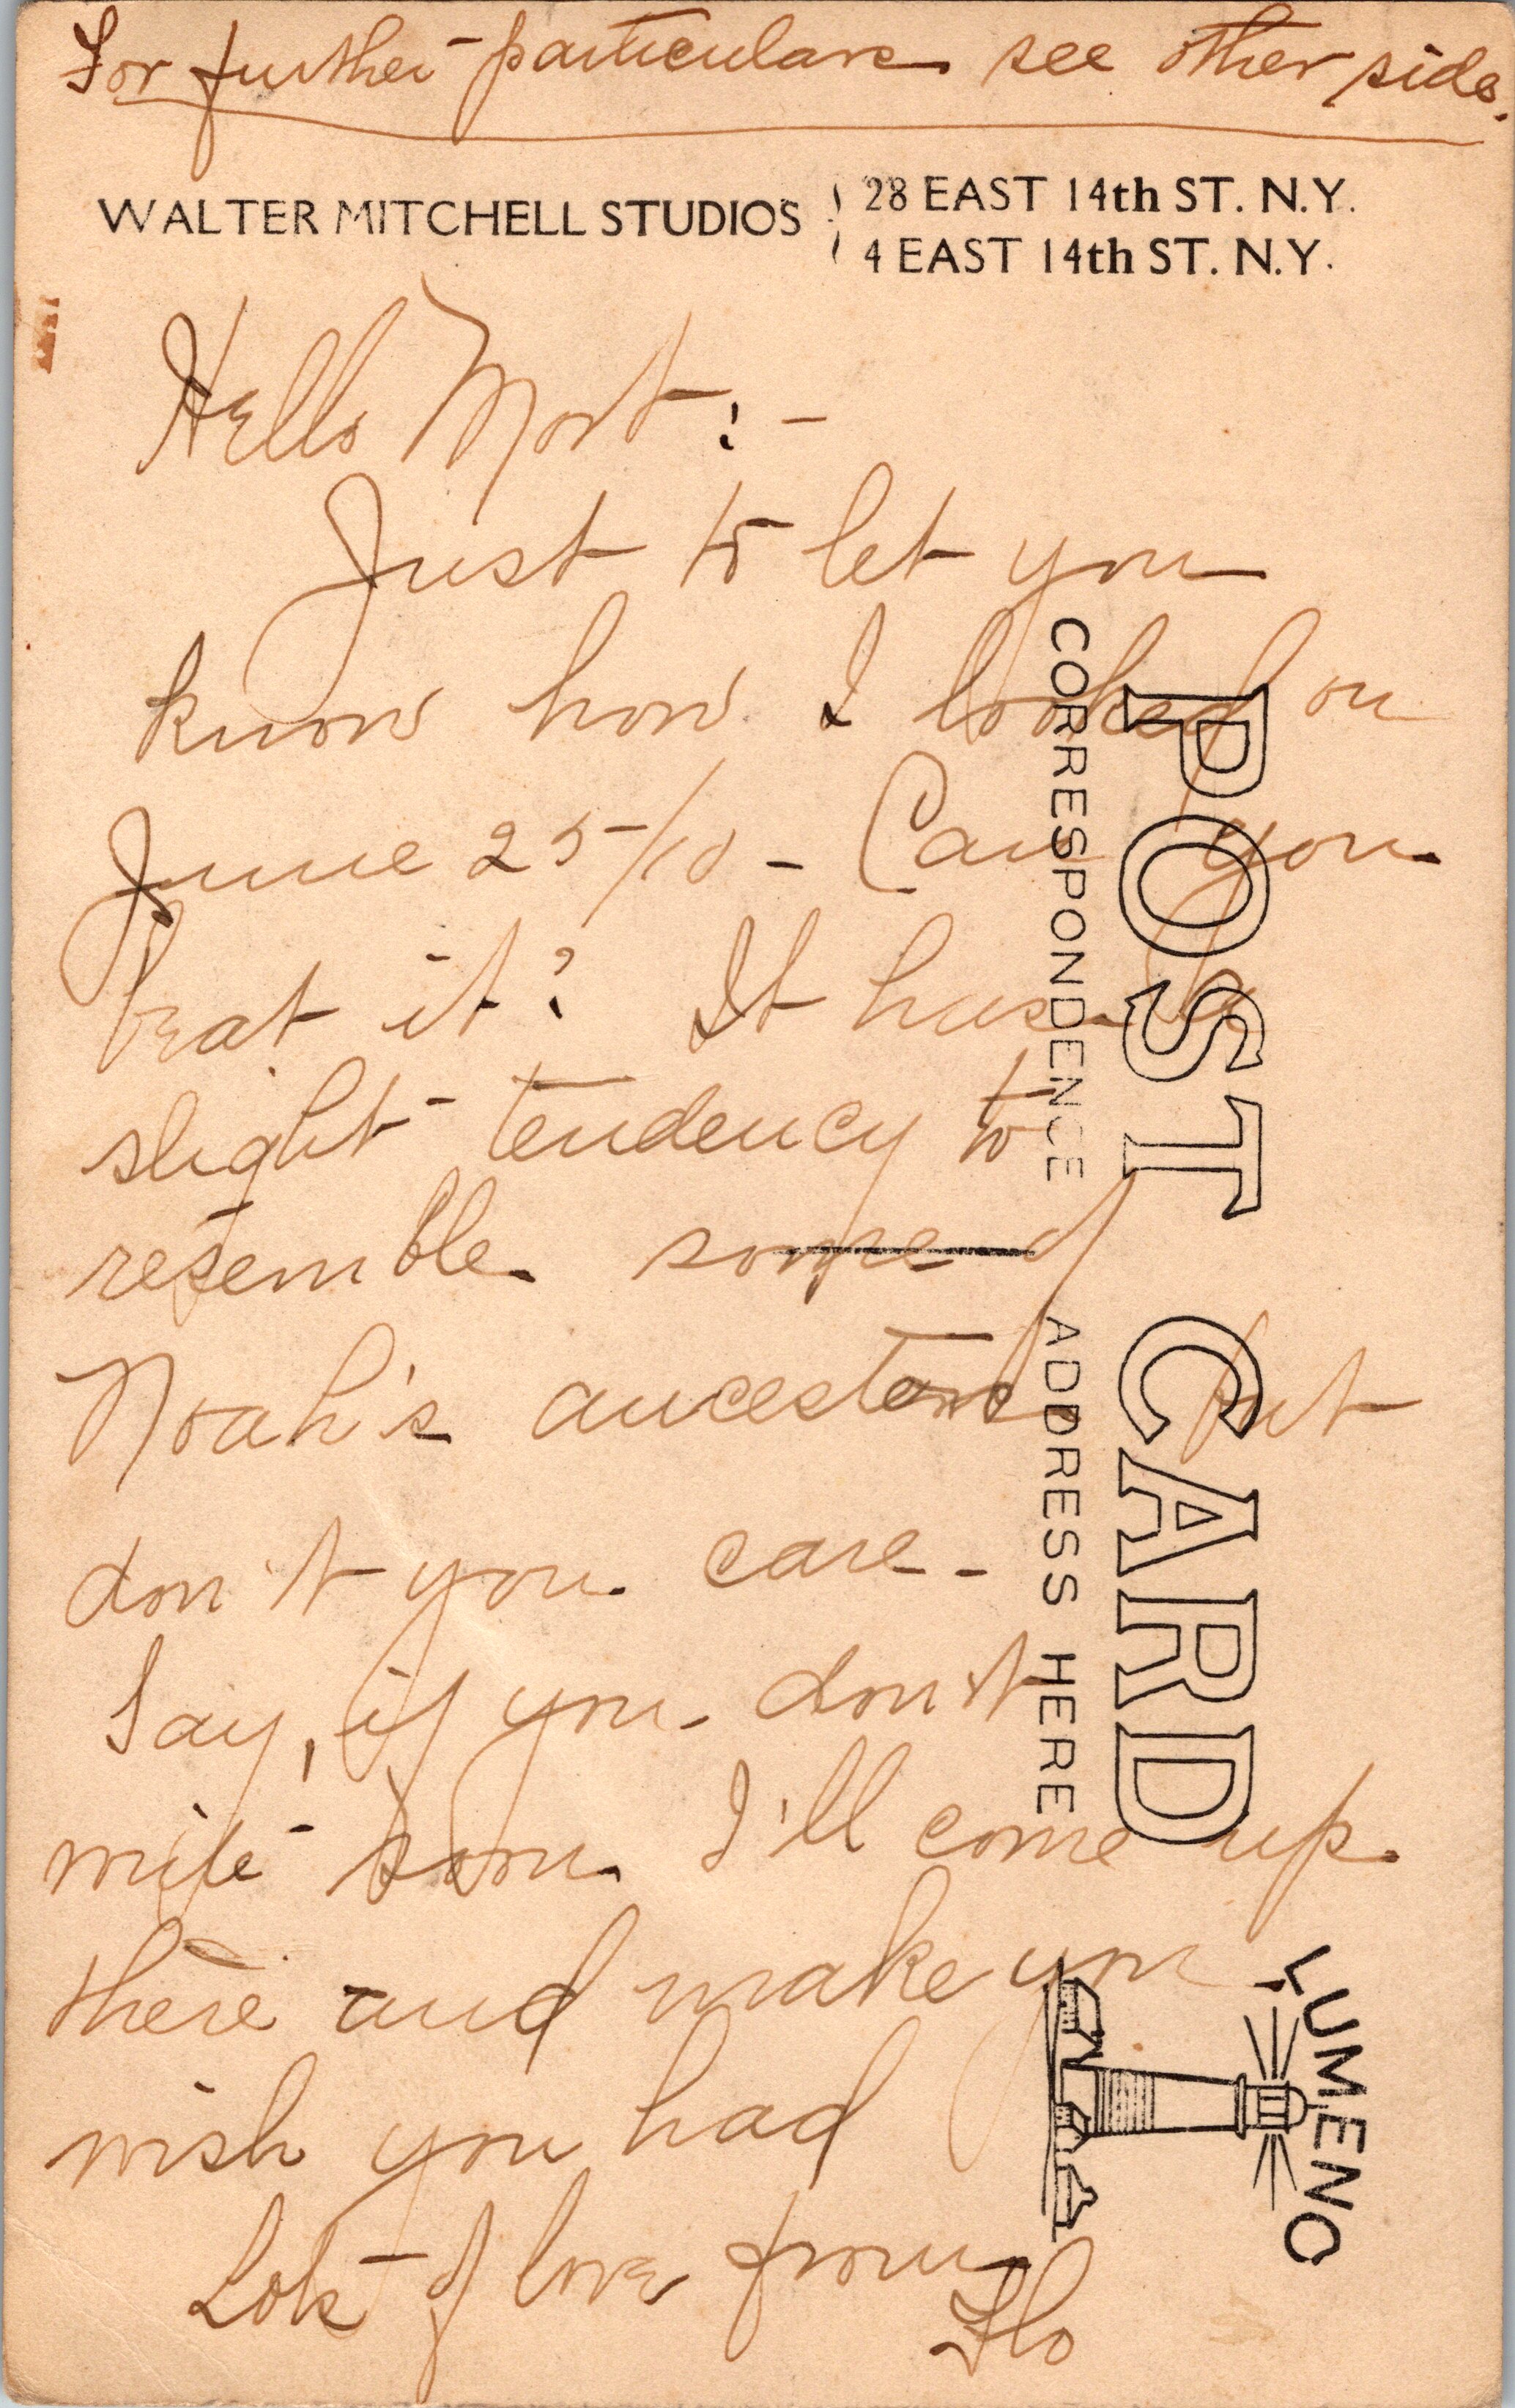 For further particulars see other side.
WALTER MITCHELL STUDIOS
28 EAST 14th ST. N.Y.
4 EAST 14th ST. N.Y.
Hello Mort:-
Just to let you
know how I looked on
June 25/10 - Can you
beat it? It has a
slight tendency to
resemble some of
Noah's ancestors but
don't you care -
Say, if you don't
write soon I'll come up
there and make you
wish you had
Lots of love from
Flo
POST CARD
CORRESPONDENCE
ADDRESS HERE
LUMENO